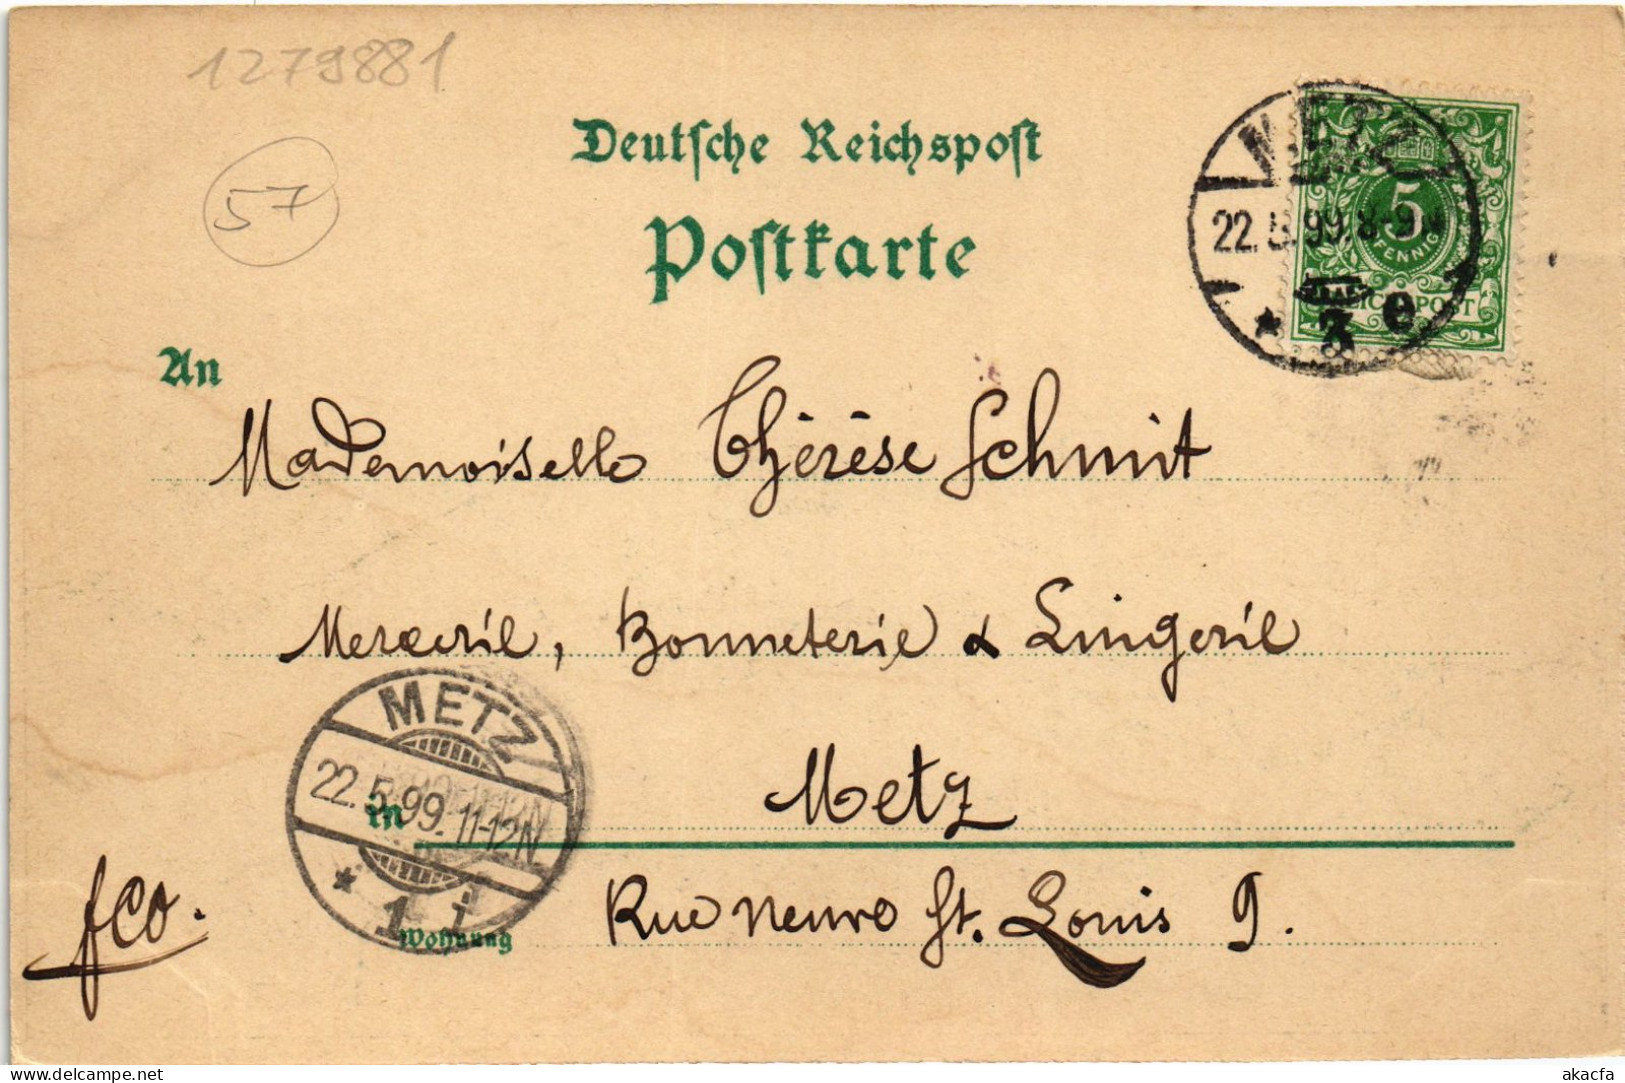 1279881
57
Deutsche Reichspost
Postkarte
METZ
22.5.99.8-9N
* 3 e *
5
PFENNIG
REICHSPOST
An
Mademoiselle Thérèse Schmit
Mercerie, Bonneterie & Lingerie
METZ
22.5.99.11-12N.
* 1 i
in
Metz
fco.
Wohnung
Rue neuve St. Louis 9.
akacfa